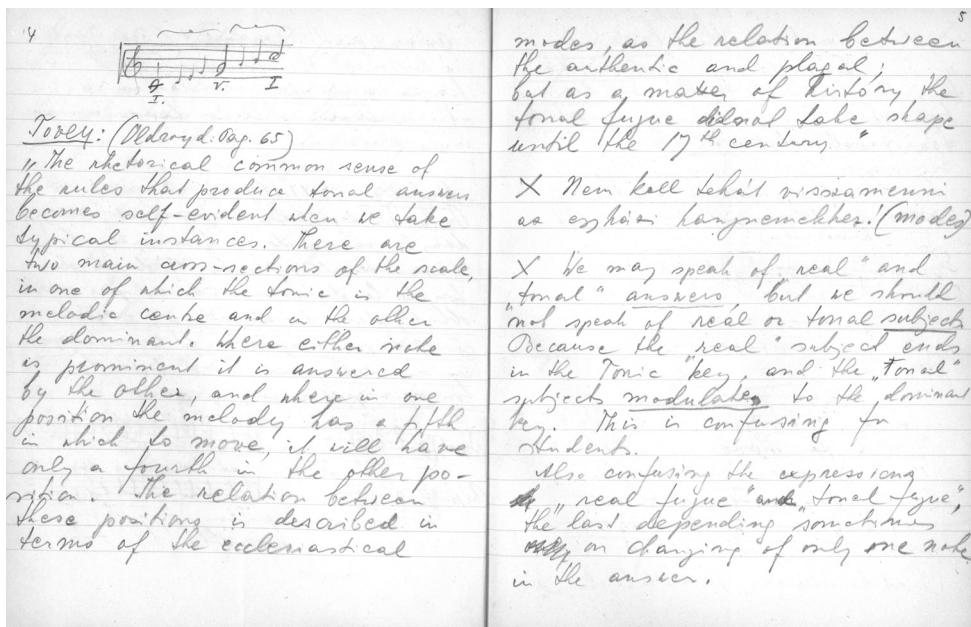 4
I. V. I
Tovey: (Oldroyd. Pag. 65)
"The rhetorical common sense of
the rules that produce tonal answers
becomes self-evident when we take
typical instances. There are
two main cross-sections of the scale,
in one of which the tonic is the
melodic centre and in the other
the dominant. Where either note
is prominent it is answered
by the other, and where in one
position the melody has a fifth
in which to move, it will have
only a fourth in the other po-
sition. The relation between
these positions is described in
terms of the ecclesiastical
5
modes, as the relation between
the authentic and plagal;
but as a matter of history the
tonal fugue did not take shape
until the 17th century"
X Nem kell tehát visszamenni
az egyházi hangnemekhez! (modes)
X We may speak of "real" and
"tonal" answers, but we should
not speak of real or tonal subjects
Because the "real" subject ends
in the Tonic key, and the "Tonal"
subjects modulates to the dominant
key. This is confusing for
students.
Also confusing the expressions
"real fugue" and "tonal fugue",
the last depending sometimes
on changing of only one note
in the answer.